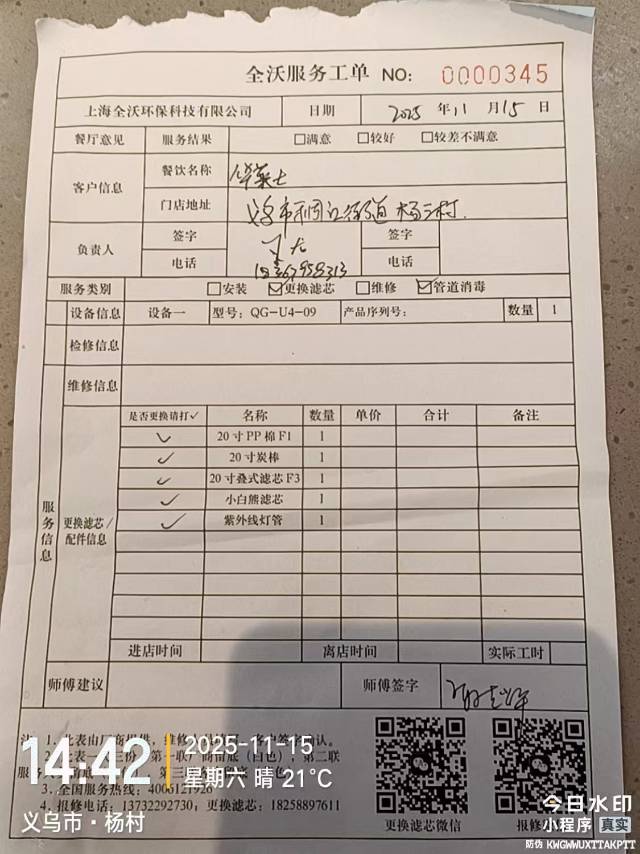 全沃服务工单 NO: 0000345
上海全沃环保科技有限公司 日期 2025 年 11 月 15 日
餐厅意见 服务结果 □满意 □较好 □较差不满意
客户信息 餐饮名称 华莱士
门店地址 义乌市稠江街道 杨村
负责人 签字 签字
电话 电话
服务类别 □安装 ☑更换滤芯 □维修 ☑管道消毒
设备信息 设备一 型号: QG-U4-09 产品序列号: 数量 1
检修信息
维修信息
服务信息 更换滤芯/配件信息
是否更换请打✓ 名称 数量 单价 合计 备注
✓ 20寸PP棉F1 1
✓ 20寸炭棒 1
✓ 20寸叠式滤芯F3 1
✓ 小白熊滤芯 1
✓ 紫外线灯管 1
进店时间 离店时间 实际工时
师傅建议 师傅签字
注 1、此表由厂商提供，维修 客户签字确认。
2、此表一式三份 第一联厂商留底（白色），第二联
服务
3、全国服务热线: 4006121920
4、报修电话: 13732292730, 更换滤芯: 18258897611
更换滤芯微信 报修
14:42 2025-11-15
星期六 晴 21°C
义乌市·杨村
今日水印
小程序 真实
防伪 KWGWWUXTTAKPTT